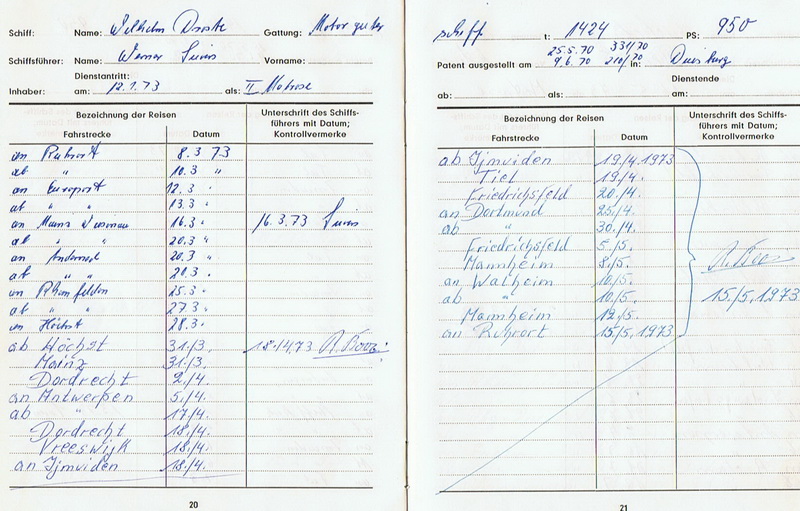 Schiff: Name: Wilhelm Droste Gattung: Motorgüter
Schiffsführer: Name: Werner Vorname:
Dienstantritt:
Inhaber: am: 12.1.73 als: II Matrose
Bezeichnung der Reisen
Unterschrift des Schiffsführers mit Datum; Kontrollvermerke
Fahrstrecke Datum
an Ruhrort 8.3 73
ab " 10.3 "
an Europort 12.3 "
ab " " 13.3 "
an Mainz 16.3 " 16.3.73
ab " " 20.3 "
an Andernach 20.3 "
ab " " 21.3 "
an Rheinfelden 25.3 "
ab " " 27.3 "
an Höchst 28.3 "
ab Höchst 31./3. 18.14.73
Mainz 31./3.
Dordrecht 2./4.
an Antwerpen 5./4.
ab " 17./4.
Dordrecht 18./4.
Vreeswijk 18./4.
an Ijmuiden 18./4.
20
schiff t: 1424 PS: 950
25.5.70 331/70
Patent ausgestellt am 9.6.70 210/70 in: Duisburg
Dienstende
ab: als: am:
Bezeichnung der Reisen
Unterschrift des Schiffsführers mit Datum; Kontrollvermerke
Fahrstrecke Datum
ab Ijmuiden 19./4.1973
Tiel 19./4.
Friedrichsfeld 20./4.
an Dortmund 25./4.
ab " 30./4.
Friedrichsfeld 5./5.
Mannheim 8./5.
an Walheim 10./5.
ab " 10./5. 15./5.1973
Mannheim 12./5.
an Ruhrort 15./5.1973
21